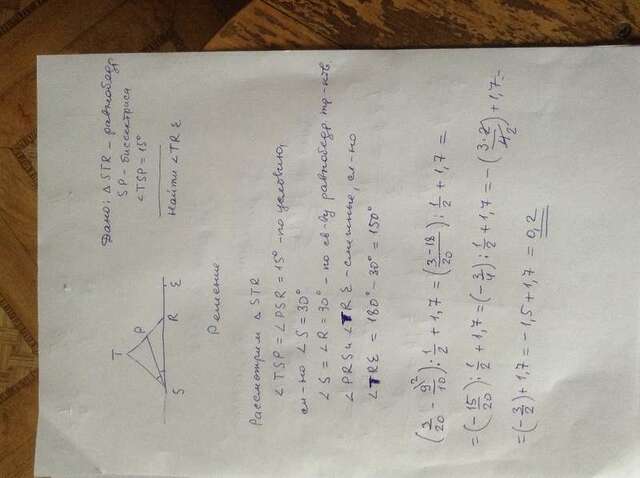 Дано: ΔSTR – равнобедр.
SP – биссектриса
∠TSP = 15°
Найти ∠TRE
T
P
S
R
E
Решение
Рассмотрим ΔSTR
∠TSP = ∠PSR = 15° – по условию,
сл-но ∠S = 30°
∠S = ∠R = 30° – по св-ву равнобедр. тр-ков.
∠PRS и ∠TRE – смежные, сл-но
∠TRE = 180° – 30° = 150°
(3/20 - 9/10 \2) : 1/2 + 1,7 = ((3-18)/20) : 1/2 + 1,7 =
= (-15/20) : 1/2 + 1,7 = (-3/4) : 1/2 + 1,7 = -(3·2/4 2) + 1,7 =
= (-3/2) + 1,7 = -1,5 + 1,7 = 0,2